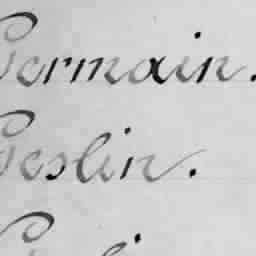 Germain.
Geslin.